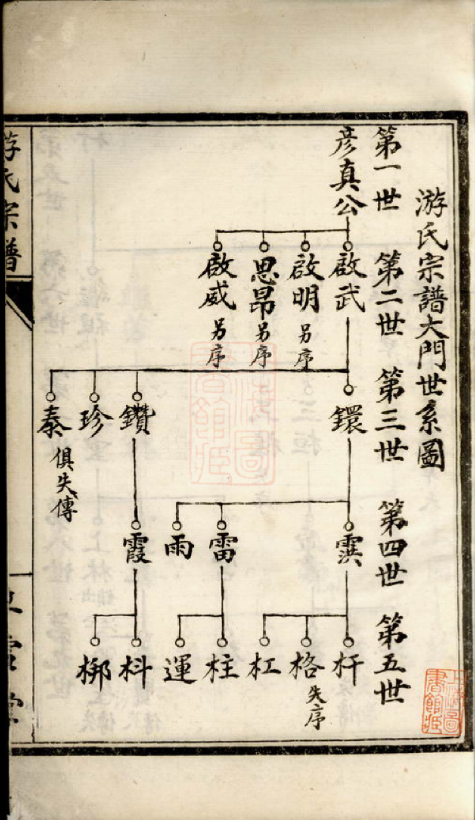 游氏宗譜大門世系圖
第一世 第二世 第三世 第四世 第五世
彦真公
啟武
啟明 另序
思昂 另序
啟威 另序
鐶
鑽
珍
泰
俱失傳
霙
雷
雨
霞
杆
格 失序
杠
柱
運
枓
梆
游氏宗譜